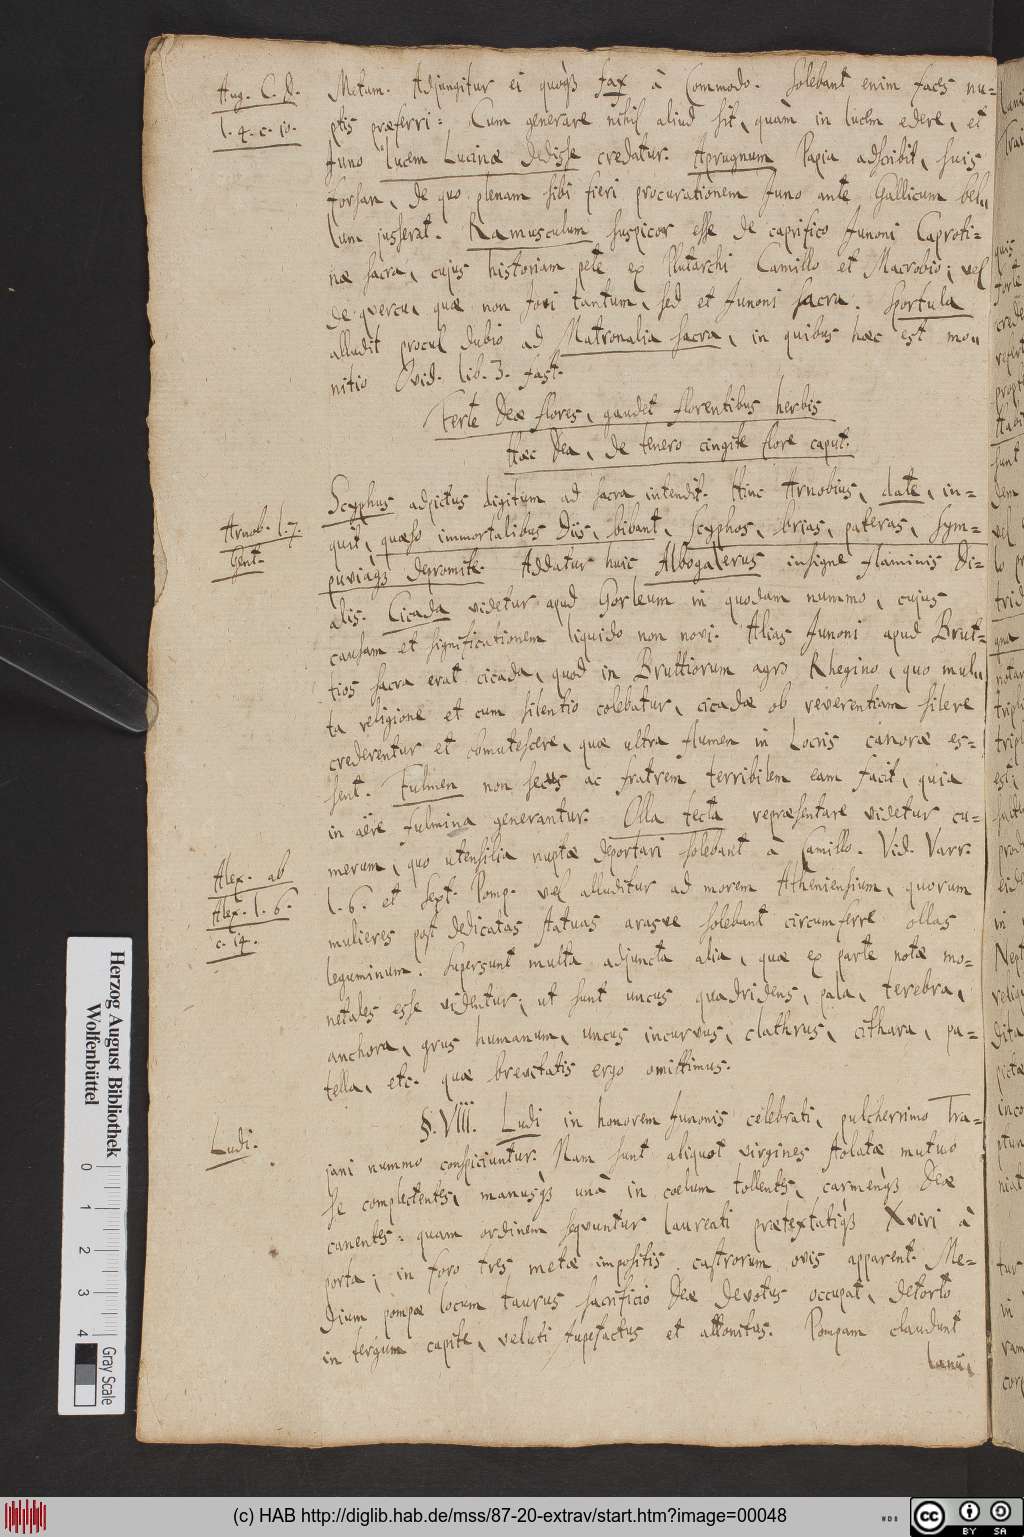 Aug. C. D.
l. 4. c. 10.
Metum. Adjungitur ei quoqз fax à Commodo. Solebant enim faces nu-
ptis præferri: Cum generare nihil aliud sit, quàm in lucem edere, et
Juno lucem Lucinæ dedisse credatur. Aprugnum Papia adscibit, suis
forsan, de quo plenam sibi fieri procurationem Juno ante Gallicum bel„
lum jusserat. Ramusculum suspicor esse de caprifico Junoni Caproti=
næ sacra, cujus historiam pete ex Plutarchi Camillo et Macrobio; vel
de qvercu, quæ non Jovi tantum, sed et Junoni sacra. Sportula
alludit procul dubio ad Matronalia sacra, in quibus hæc est mo„
nitio Ovid. lib. 3. fast.
Ferte Deæ flores, gaudet florentibus herbis
Hæc Dea, de tenero cingite flore caput.
Arnob. l. 7.
Gent.
Scyphus adspictus digitum ad sacra intendit. Hinc Arnobius, date, in=
quit, quæso immortalibus Diis, bibant, scyphos, brias, pateras, sym=
puviaqз depromite. Addatur huic Albogalerus insigne flaminis Di=
alis. Cicada videtur apud Gorleum in quodam nummo, cujus
causam et significationem liquido non novi. Alias Junoni apud Brut=
tios sacra erat cicada, quod in Bruttiorum agro Rhegino, quo mul„
ta religione et cum silentio colebatur, cicadæ ob reverentiam silere
crederentur et obmutescere, quæ ultra flumen in Locris canoræ es=
sent. Fulmen non secus ac fratrem terribilem eam facit, quia
in aëre fulmina generantur. Olla tecta repræsentare videtur cu=
merum, quo utensilia nuptæ deportari solebant à Camillo. Vid. Varr.
Alex. ab
Alex. l. 6.
c. 14.
l. 6. et Sext. Pomp. vel alluditur ad morem Atheniensium, quorum
mulieres post dedicatas statuas arasve solebant circumferre ollas
leguminum. Supersunt multa adjuncta alia, quæ ex parte notæ mo=
netales esse videntur; ut sunt uncus quadridens, pala, terebra,
anchora, grus humanum, uncus incurvus, clathrus, cithara, pa=
tella, etc. quæ brevitatis ergo omittimus.
Ludi.
§. VIII. Ludi in honorem Junonis celebrati, pulcherrimo Tra=
jani nummo conspiciuntur. Nam sunt aliquot virgines stolatæ mutuo
se complectentes, manusqз unà in coelum tollentes, carmenqз Deæ
canentes: quam ordinem seqvuntur laureati prætextatiqз Xviri à
porta; in foro tres metæ impositis castrorum ovis apparent. Me=
dium pompæ locum taurus sacrificio Deæ devotus occupat, detorto
in tergum capite, veluti stupefactus et attonitus. Pompam claudunt
lanii,
Herzog August Bibliothek
Wolfenbüttel
0 1 2 3 4
Gray Scale
(c) HAB http://diglib.hab.de/mss/87-20-extrav/start.htm?image=00048
cc BY SA